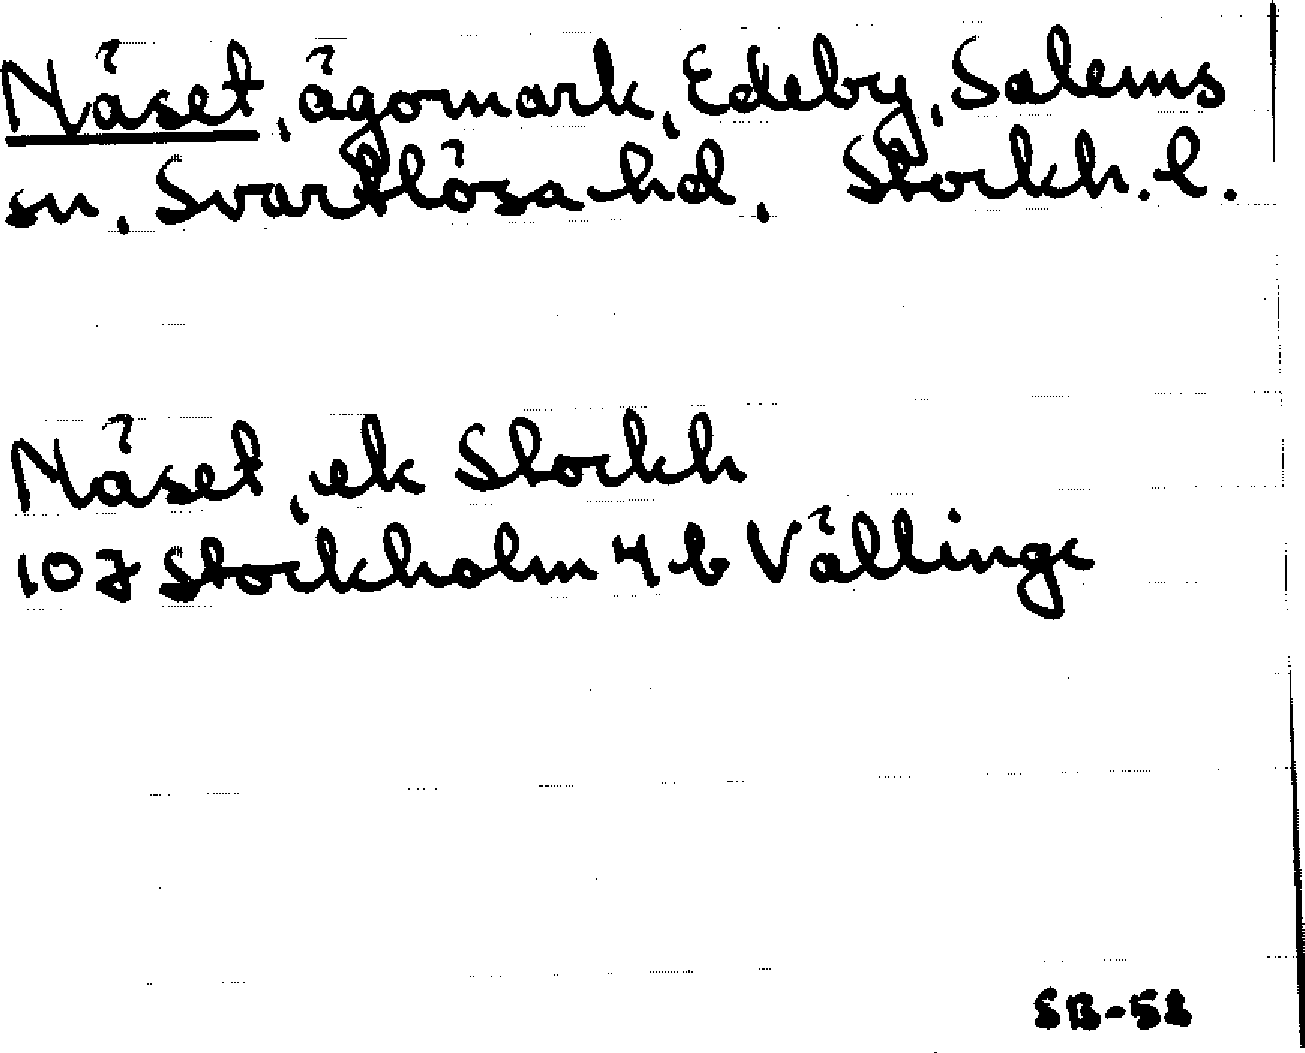 Näset, ägomark, Edeby, Salems
sn, Svartlösa hd, Stockh. l.
Näset, ek Stockh
10J Stockholm 4 b Vällinge
SB-58